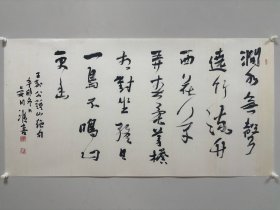 澗水無聲
遶竹流竹
西花草
弄春柔茅檐
相對坐終日
一鳥不鳴山
更幽
王荆公鍾山絕句